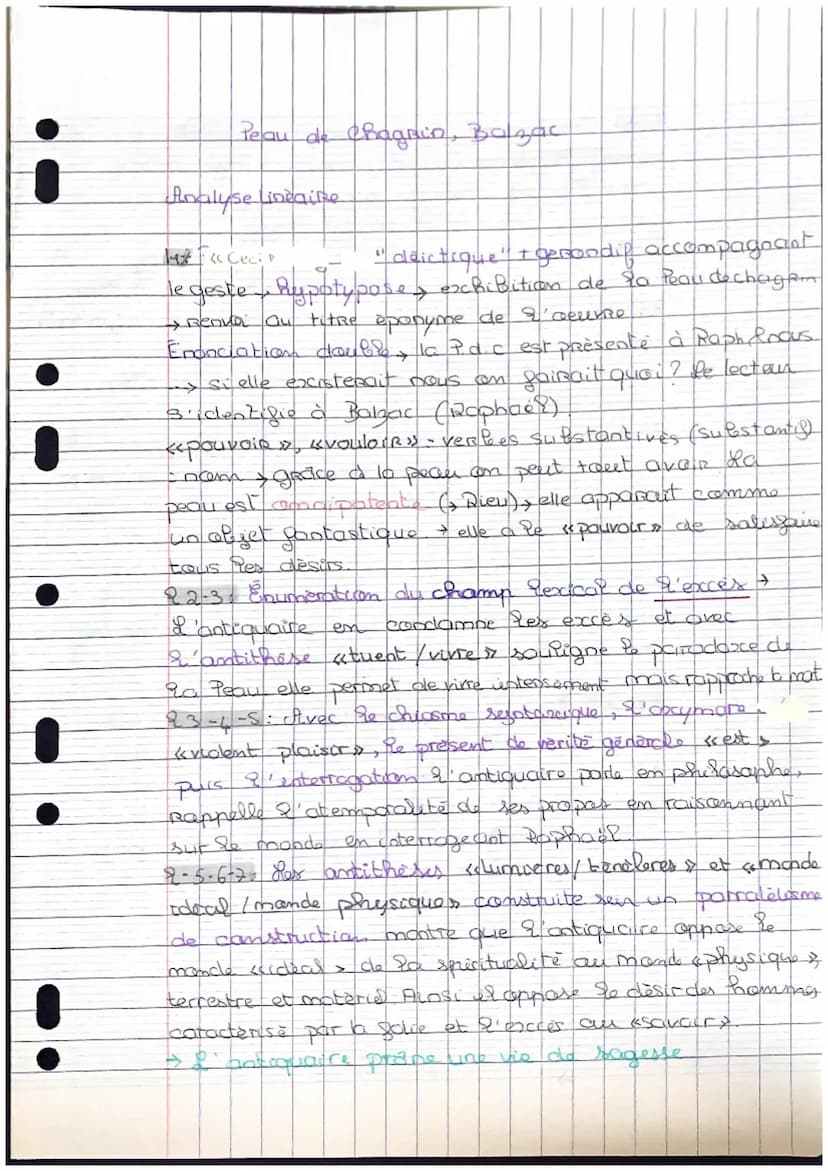 Peau de Chagrin, Balzac
Analyse linéaire
« Ceci » "déictique" + gerondif accompagnant
le geste, hypotypose → exchibition de la Peau de chagrin
→ Renvoi au titre éponyme de l'oeuvre
Enonciation double, la P.d.c est présenté à Raph & nous
→ si elle excisterait nous on fairait quoi? le lecteur
s'identifie à Balzac (Raphaël)
«pouvoir», «vouloir» - verbes substantivés (substantif
= nom → grâce à la peau on peut tout avoir. La
peau est omnipotente (→ Dieu), elle apparait comme
un objet fantastique → elle a le «pouvoir» de satisfaire
tous les désirs.
l 2-3: Énumération du champ lexical de l'excès →
L'antiquaire en condamne les excès et avec
l'antithèse «tuent / vivre» souligne le paradoxe de
la Peau elle permet de vivre intensement mais rapproche la mort
l 3-4-5: Avec le chiasme syntaxique, l'oxymore
«violent plaisir», le présent de vérité générale «est»
puis l'interrogation l'antiquaire parle en philosophe,
Rappelle l'atemporalité de ses propos en raisonnant
sur le monde en interrogeant Raphaël.
l-5-6-7: Les antithèses «lumières / ténèbres» et «monde
idéal / monde physique» construite sur un parralélisme
de construction montre que l'antiquaire oppose le
monde «idéal» de la spiritualité au monde «physique»
terrestre et matériel. Ainsi il oppose le désir des hommes
caractérisé par la folie et l'excès au «savoir».
→ L'antiquaire prône une vie de sagesse